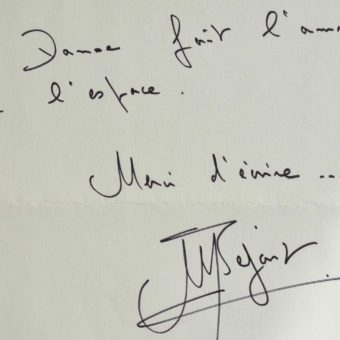 Danse fait l'amo
l'espace.
Merci d'écrire ...
MBejart.